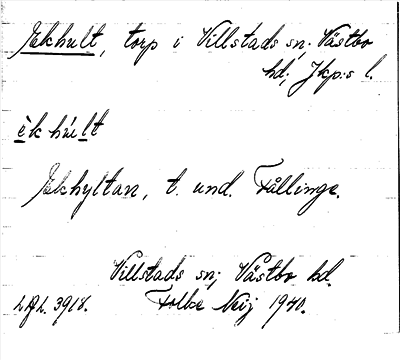 Ekhult, torp i Villstads sn; Västbo
hd; Jkp:s l.
èk hùlt
Ekhyltan, t. und. Fållinge.
Villstads sn; Västbo hd.
LAL. 3918. Folke Neij 1940.